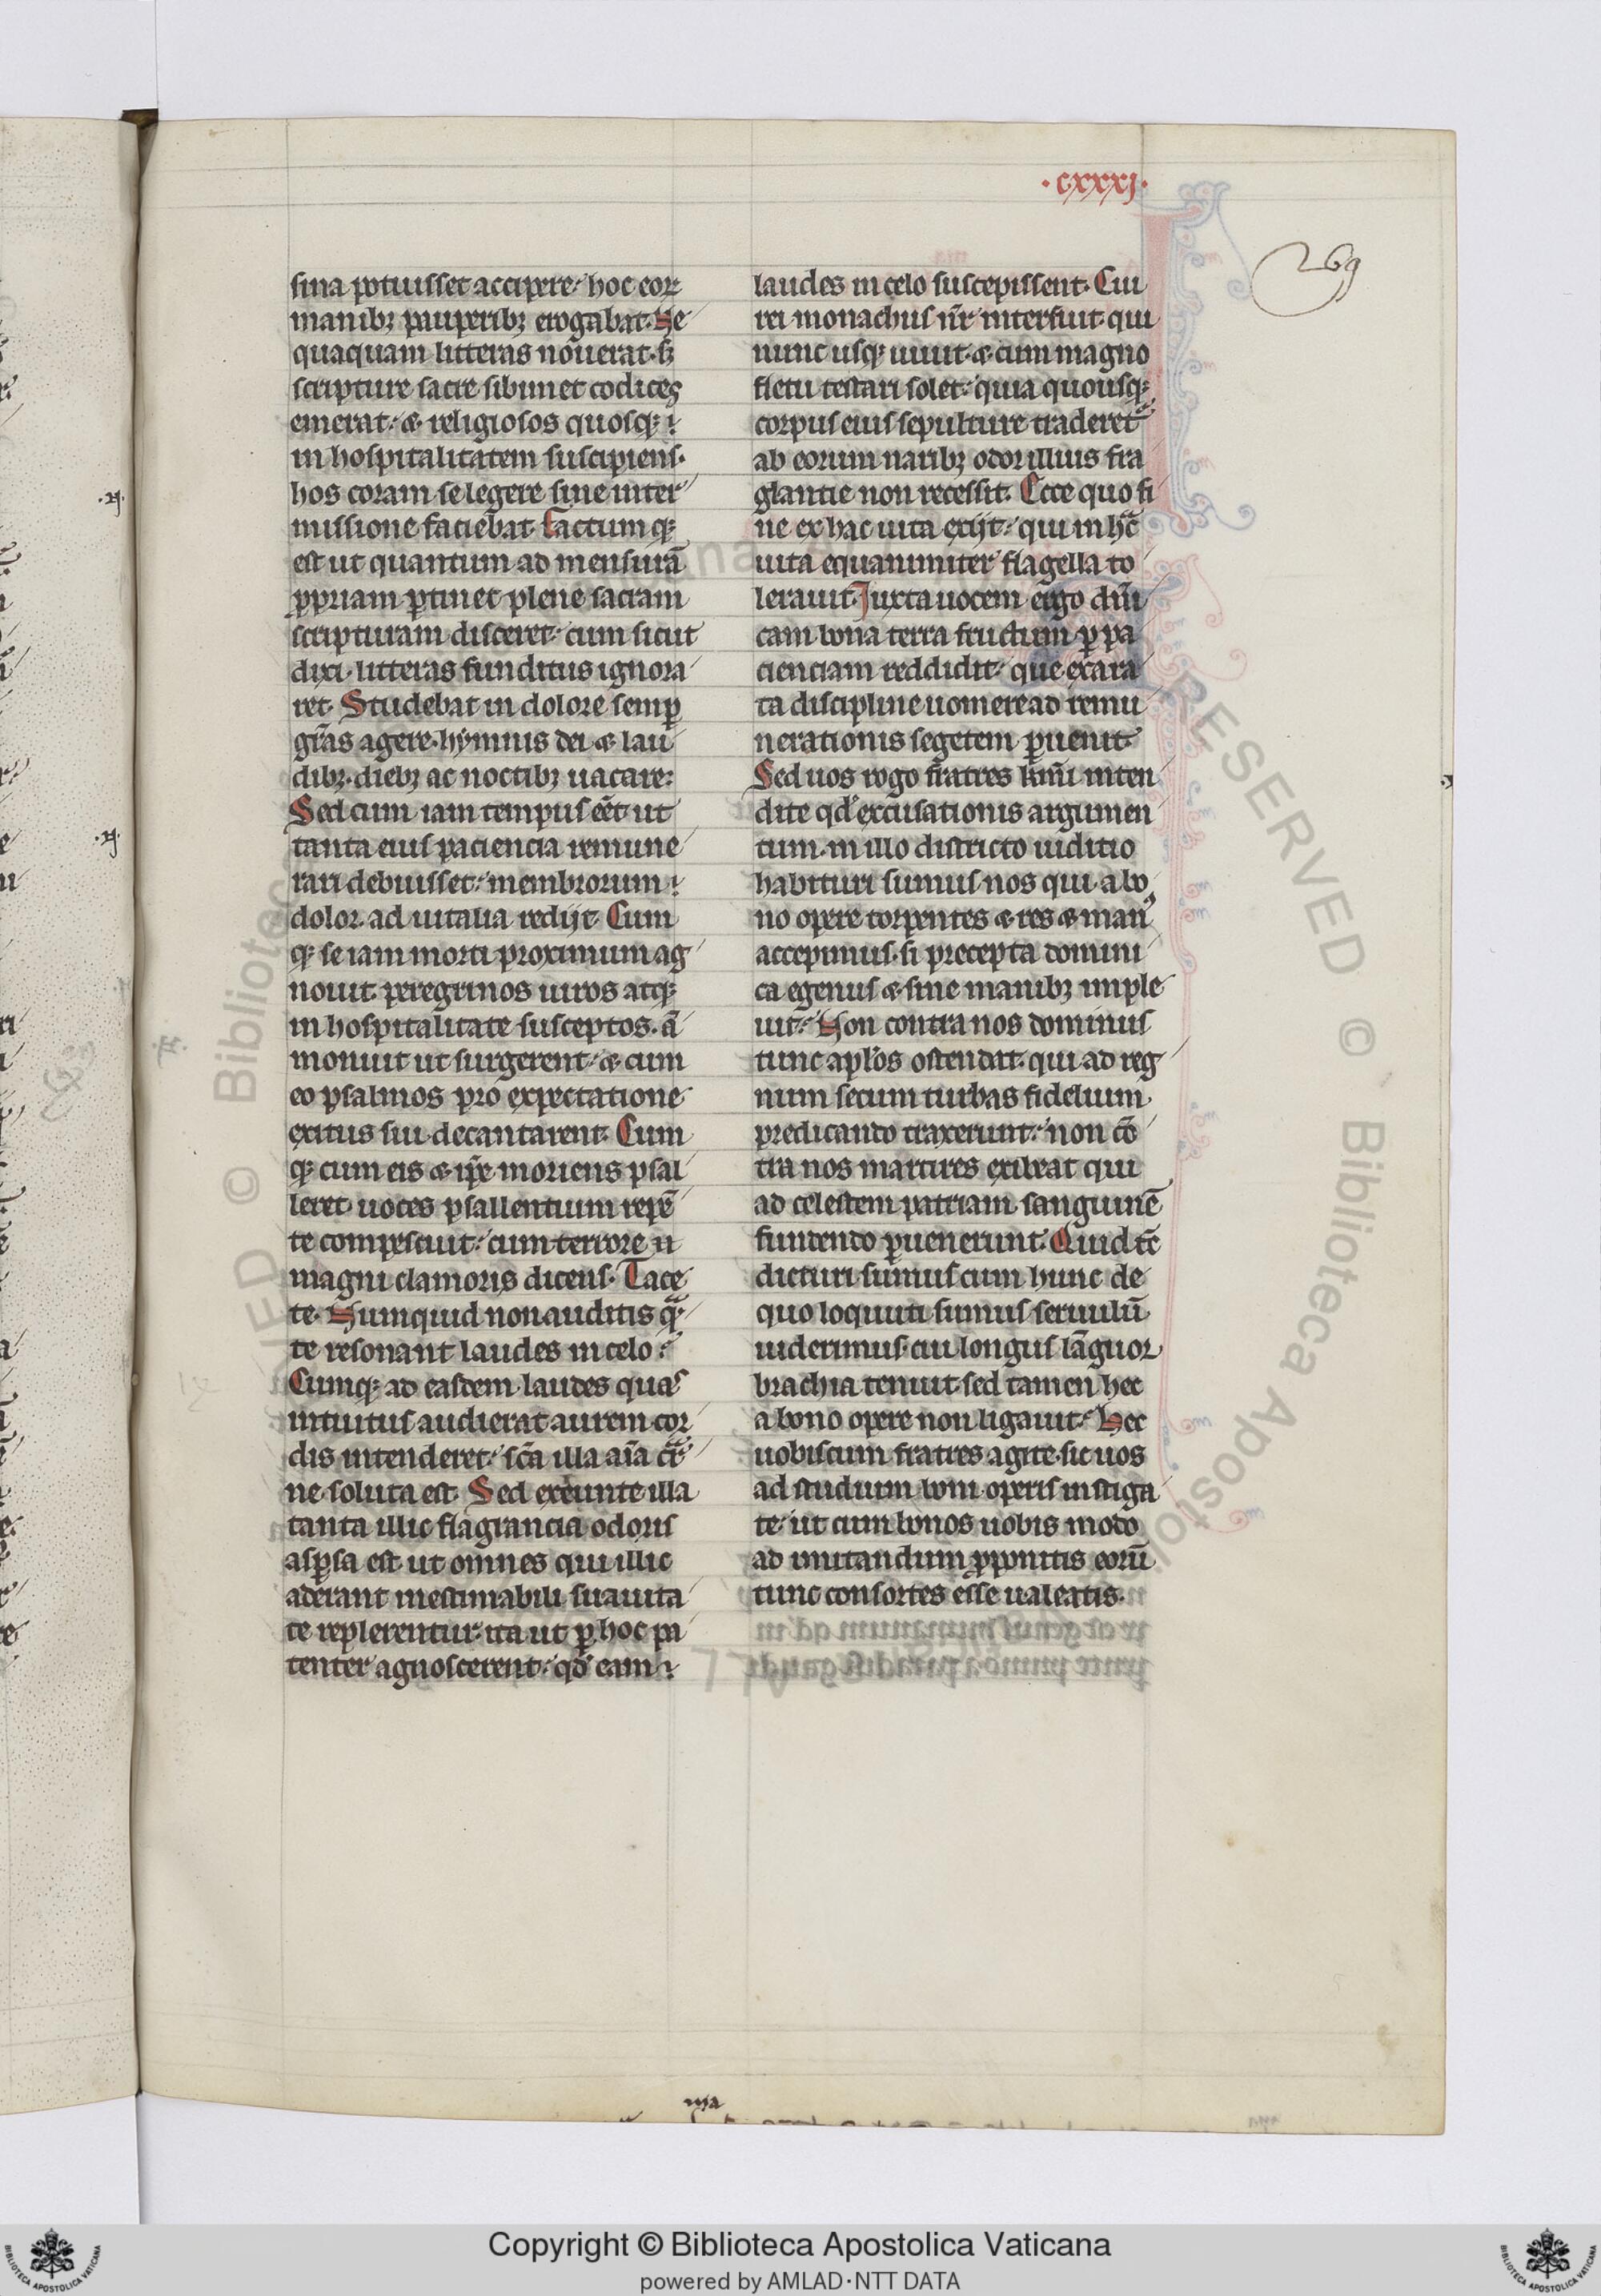 ·cxxxj·
269
sina potuisset accipere. hoc eoꝝ
manibꝫ pauperibꝫ erogabat. Ne
quaquam litteras nouerat. sꝫ
scripture sacre sibimet codices
emerat. ⁊ religiosos quosqꝫ
in hospitalitatem suscipiens.
hos coram se legere sine inter
missione faciebat. Factumqꝫ
est ut quantum ad mensurā
ꝓpriam ꝑtinet plene sacram
scripturam disceret. cum sicut
dixi. litteras funditus ignora
ret. Studebat in dolore semꝑ
gr̄as agere. hymnis dei ⁊ lau
dibꝫ. diebꝫ ac noctibꝫ uacare:
Sed cum iam tempus eēt ut
tanta eius paciencia remune
rari debuisset. membrorum
dolor. ad uitalia redijt. Cum
qꝫ se iam morti proximum ag
nouit. peregrinos uiros atqꝫ
in hospitalitate susceptos. ā
monuit ut surgerent. ⁊ cum
eo psalmos pro expectatione
exitus sui decantarent. Cum
qꝫ cum eis ⁊ ip̄e moriens psal
leret uoces psallentium repē
te compescuit. cum terrore
magni clamoris dicens. Tace
te. Numquid non auditis qᵃ
te resonant laudes in celo.
Cumqꝫ ad easdem laudes quas
intuitus audierat aurem cor
dis intenderet. sc̄a illa aīa cᵃ
ne soluta est. Sed exeunte illa
tanta illic flagrancia odoris
asꝑsa est ut omnes qui illic
aderant inestimabili suauita
te replerentur. ita ut ꝑ hoc pa
tenter agnoscerent. qd̓ eam
laudes in celo suscepissent. Cui
rei monachus nr̄ interfuit. qui
nunc usqꝫ uiuit. ⁊ cum magno
fletu testari solet. quia quousqꝫ
corpus eius sepulture traderetᵃ
ab eorum naribꝫ odor illius fra
glantie non recessit. Ecce quo fi
ne ex hac uita exijt. qui in hᵃc
uita equanimiter flagella to
lerauit. Juxta uocem ergo dn̄i
cam bona terra fructum ꝑ pa
cienciam reddidit. que exara
ta discipline uomere ad remu
nerationis segetem ꝑuenit.
Sed uos rogo fratres kmī inten
dite qd̓ excusationis argumen
tum. in illo districto iuditio
habituri sumus nos qui a bo
no opere torpentes ⁊ res ⁊ man⁹
accepimus. si precepta domini
ca egenus ⁊ sine manibꝫ imple
uit. Non contra nos dominus
tunc apl̓os ostendat. qui ad reg
num secum turbas fidelium
predicando traxerunt. non cō
tra nos martires exibeat qui
ad celestem patriam sanguinē
fundendo ꝑuenerunt. Quid tc̄
dicturi sumus cum hunc de
quo loquuti sumus seruulū
uiderimus. cui longus lāguor
brachia tenuit. sed tamen hec
a bono opere non ligauit. Hec
uobiscum fratres agite. sic uos
ad studium boni operis instiga
te. ut cum bonos uobis modo
ad imitandum ꝓponitis eorū
tunc consortes esse ualeatis.
Copyright © Biblioteca Apostolica Vaticana
powered by AMLAD·NTT DATA